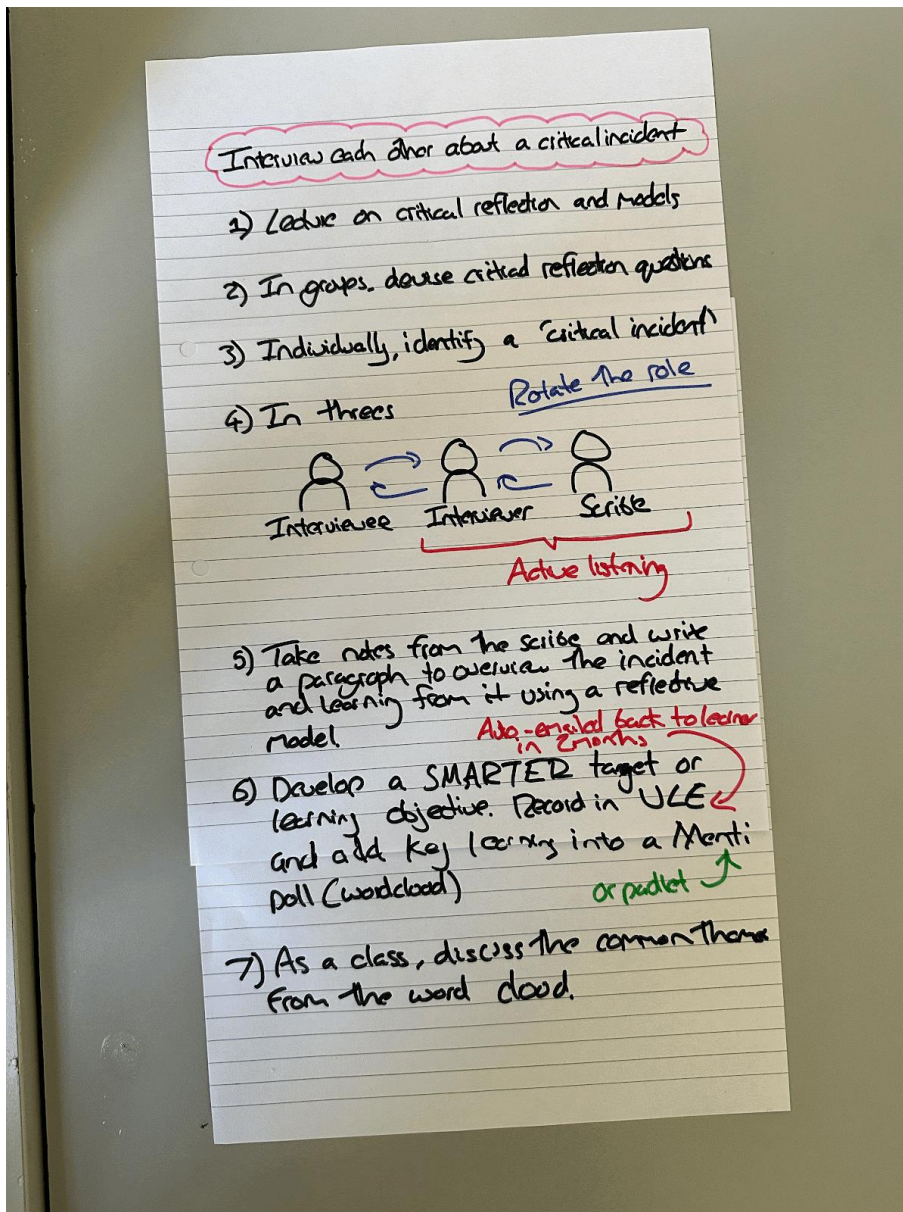 Interview each other about a critical incident
1) Lecture on critical reflection and models
2) In groups. devise critical reflection questions
3) Individually, identify a "critical incident"
Rotate the role
4) In threes
Interviewee Interviewer Scribe
Active listening
5) Take notes from the scribe and write
a paragraph to overview the incident
and learning from it using a reflective
model.
Auto-emailed back to learner
in 2 months
6) Develop a SMARTER target or
learning objective. Record in VLE
and add key learning into a Menti
poll (wordcloud)
or padlet
7) As a class, discuss the common themes
from the word cloud.